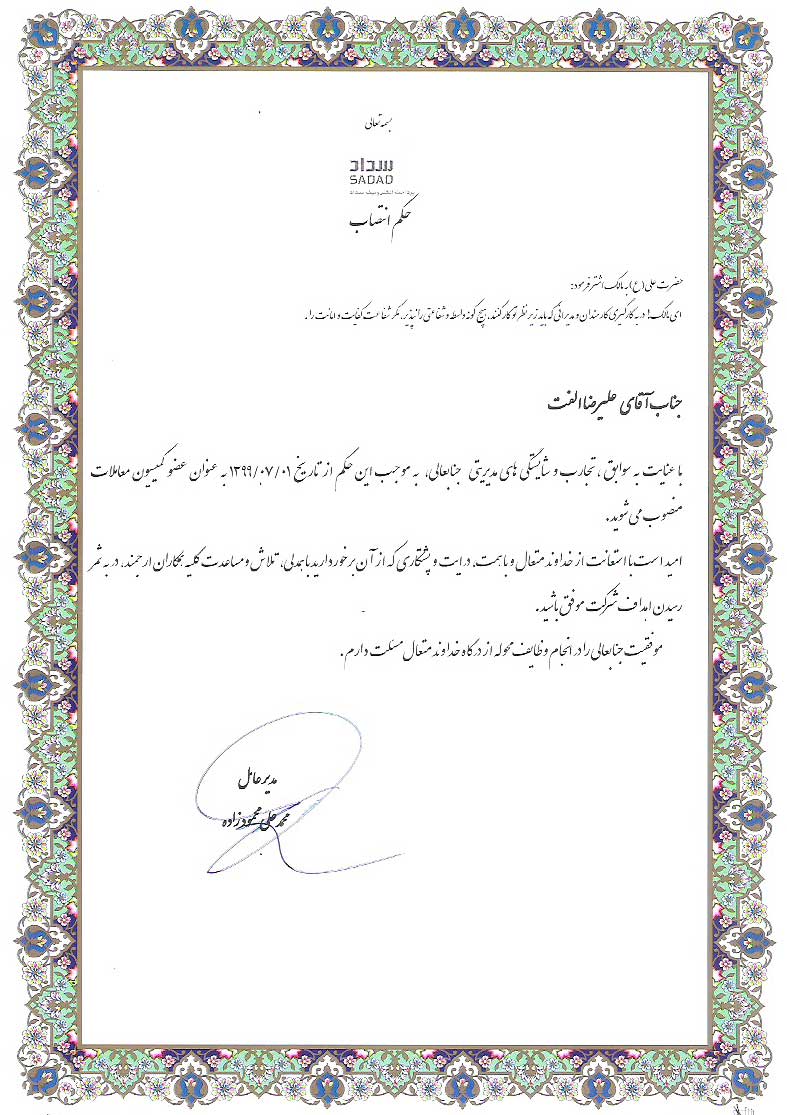 بسمه تعالی
سداد
SADAD
پرداخت الکترونیک سداد
حکم انتصاب
حضرت علی(ع) به مالک اشتر فرمود:
ای مالک! در به کارگیری کارمندان و مدیرانی که باید زیر نظر تو کار کنند، هیچ گونه واسطه و شفاعتی را نپذیر، مگر شفاعت کفایت و امانت را.
جناب آقای علیرضا الفت
با عنایت به سوابق ، تجارب و شایستگی های مدیریتی جنابعالی، به موجب این حکم از تاریخ ۱۳۹۹/۰۷/۰۱ به عنوان عضو کمیسیون معاملات
منصوب می شوید.
امید است با استعانت از خداوند متعال و با همت، درایت و پشتکاری که از آن برخوردارید با همدلی، تلاش و مساعدت کلیه همکاران ارجمند، در به ثمر
رسیدن اهداف شرکت موفق باشید.
موفقیت جنابعالی را در انجام وظایف محوله از درگاه خداوند متعال مسئلت دارم.
مدیرعامل
محمدعلی محمودزاده